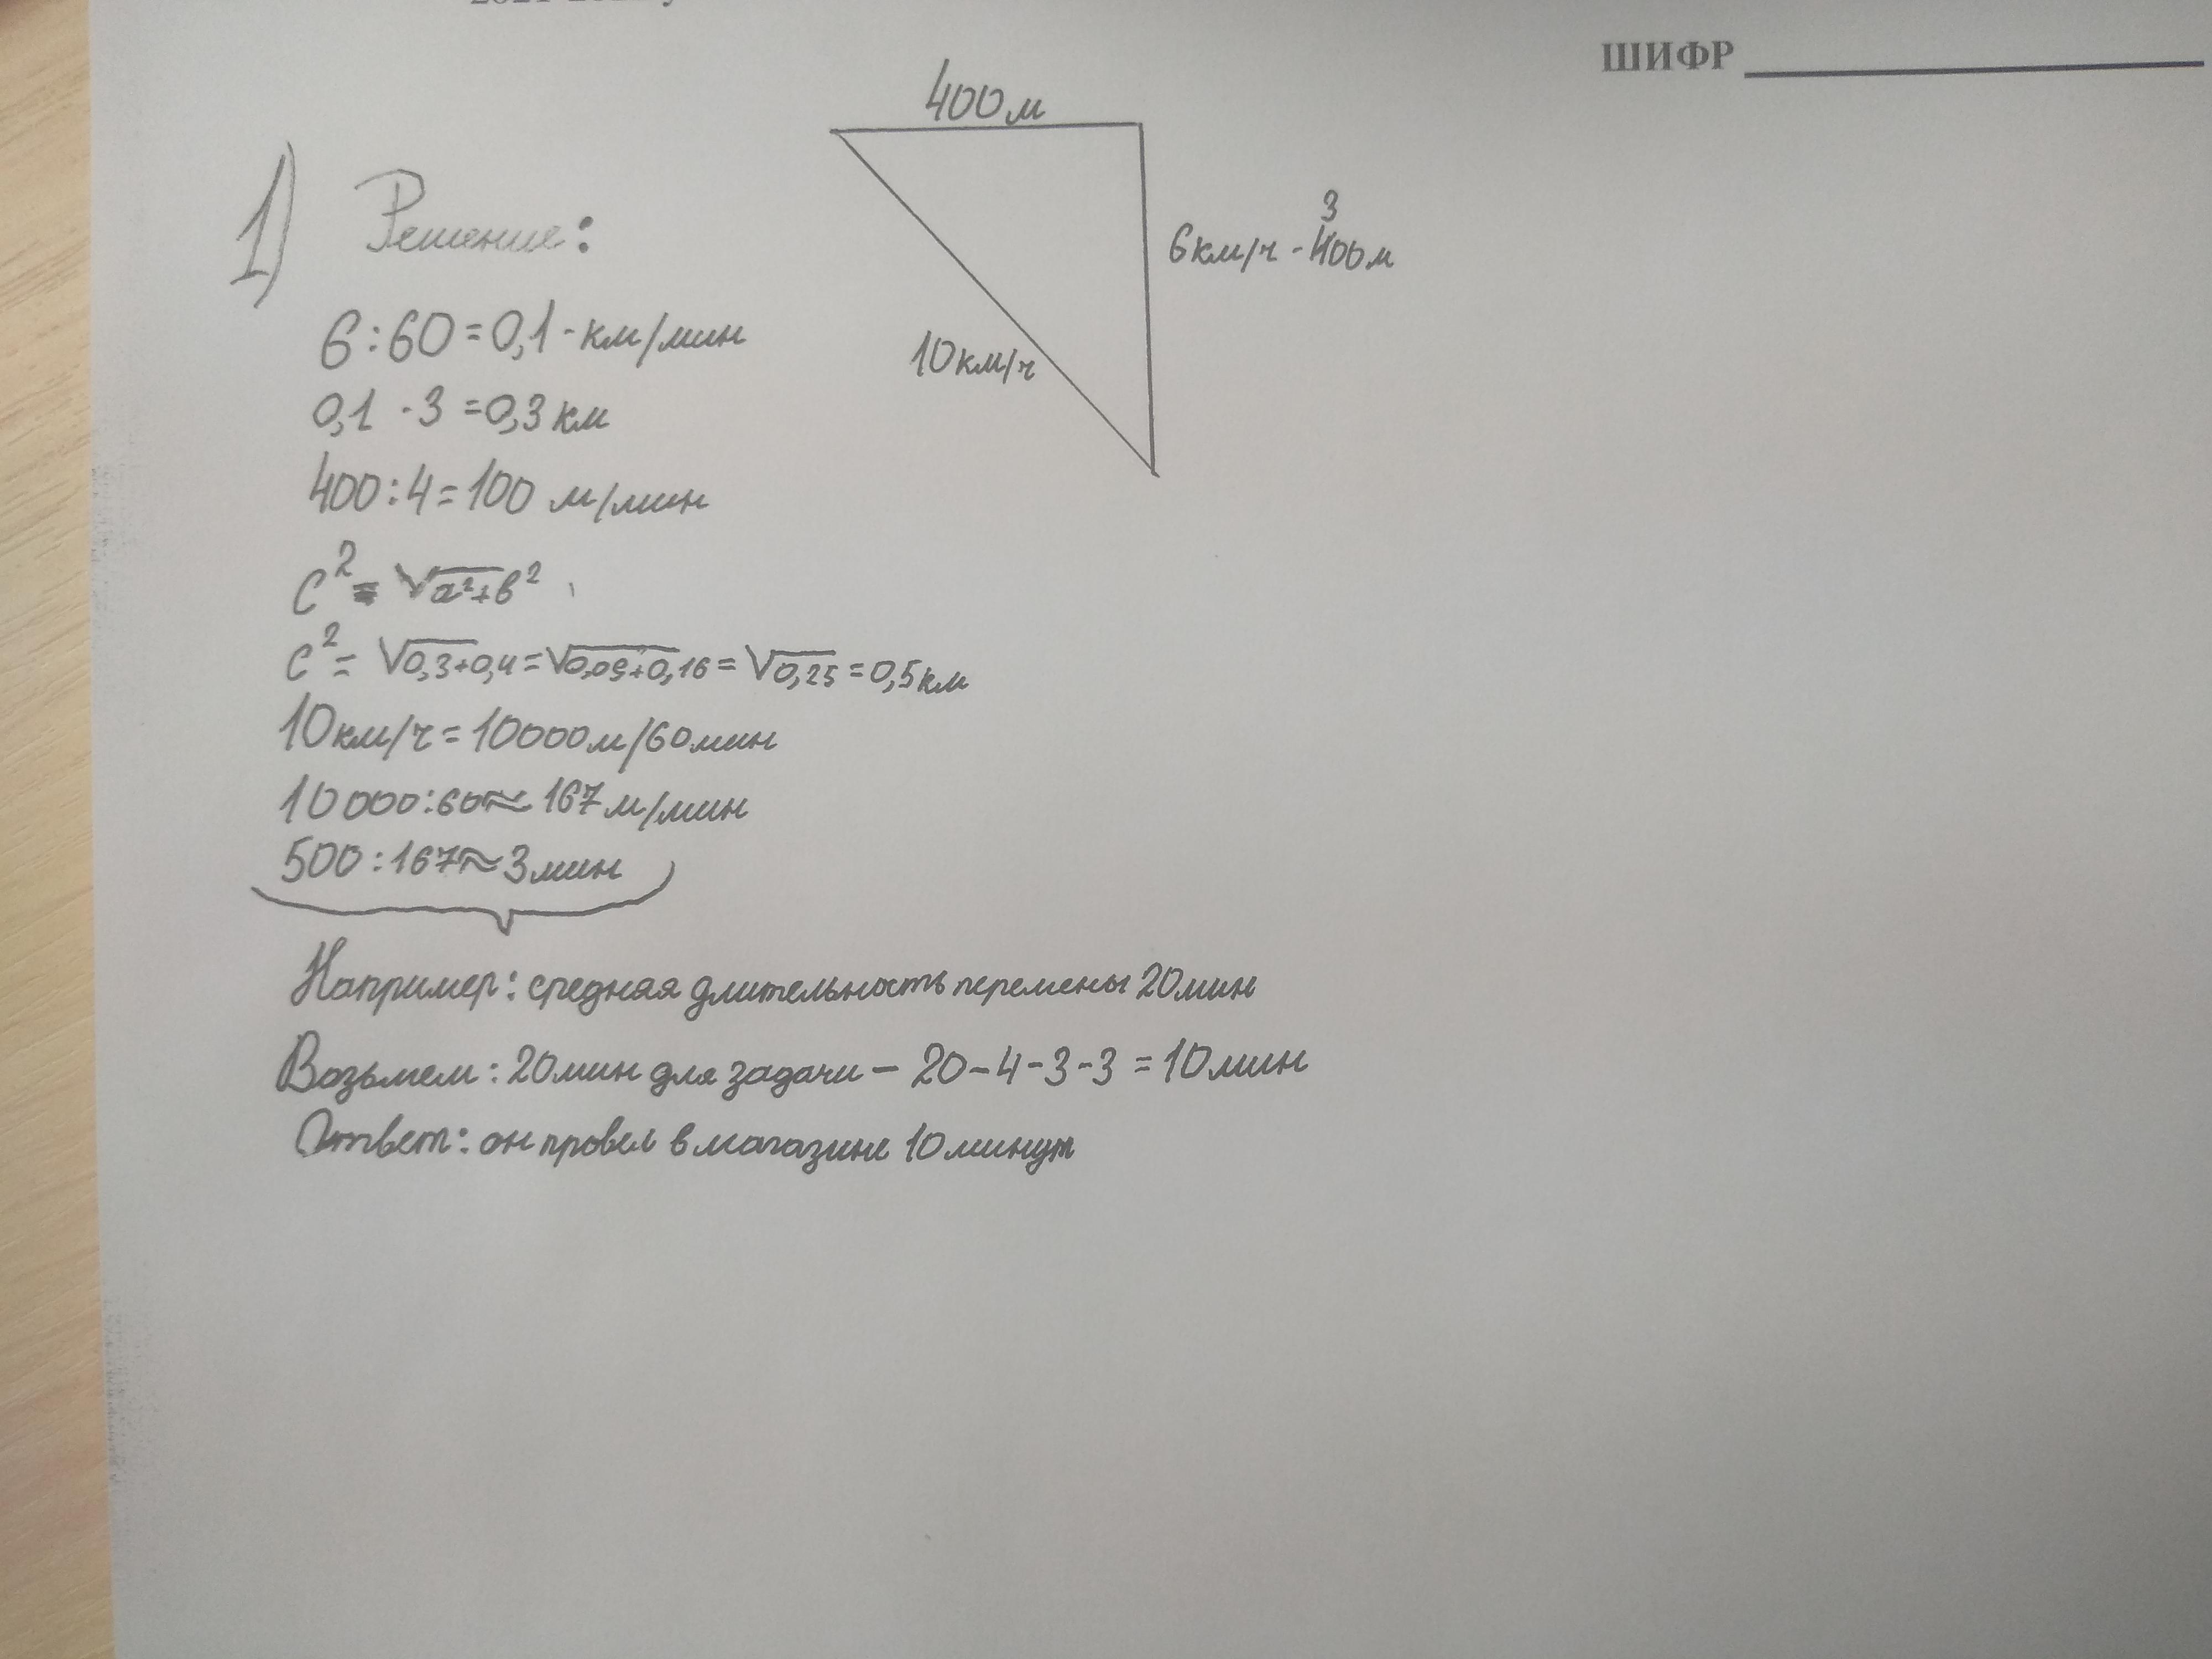 ШИФР
400м
1) Решение:
6км/ч - 300м
10км/ч
6:60=0,1 - км/мин
0,1 · 3 = 0,3 км
400:4=100 м/мин
c² = √a²+b²
c² = √0,3+0,4 = √0,09+0,16 = √0,25 = 0,5км
10км/ч = 10000м/60мин
10000:60≈167м/мин
500:167≈3мин
Например: средняя длительность перемены 20мин
Возьмем: 20мин для задачи – 20-4-3-3 = 10мин
Ответ: он провел в магазине 10 минут